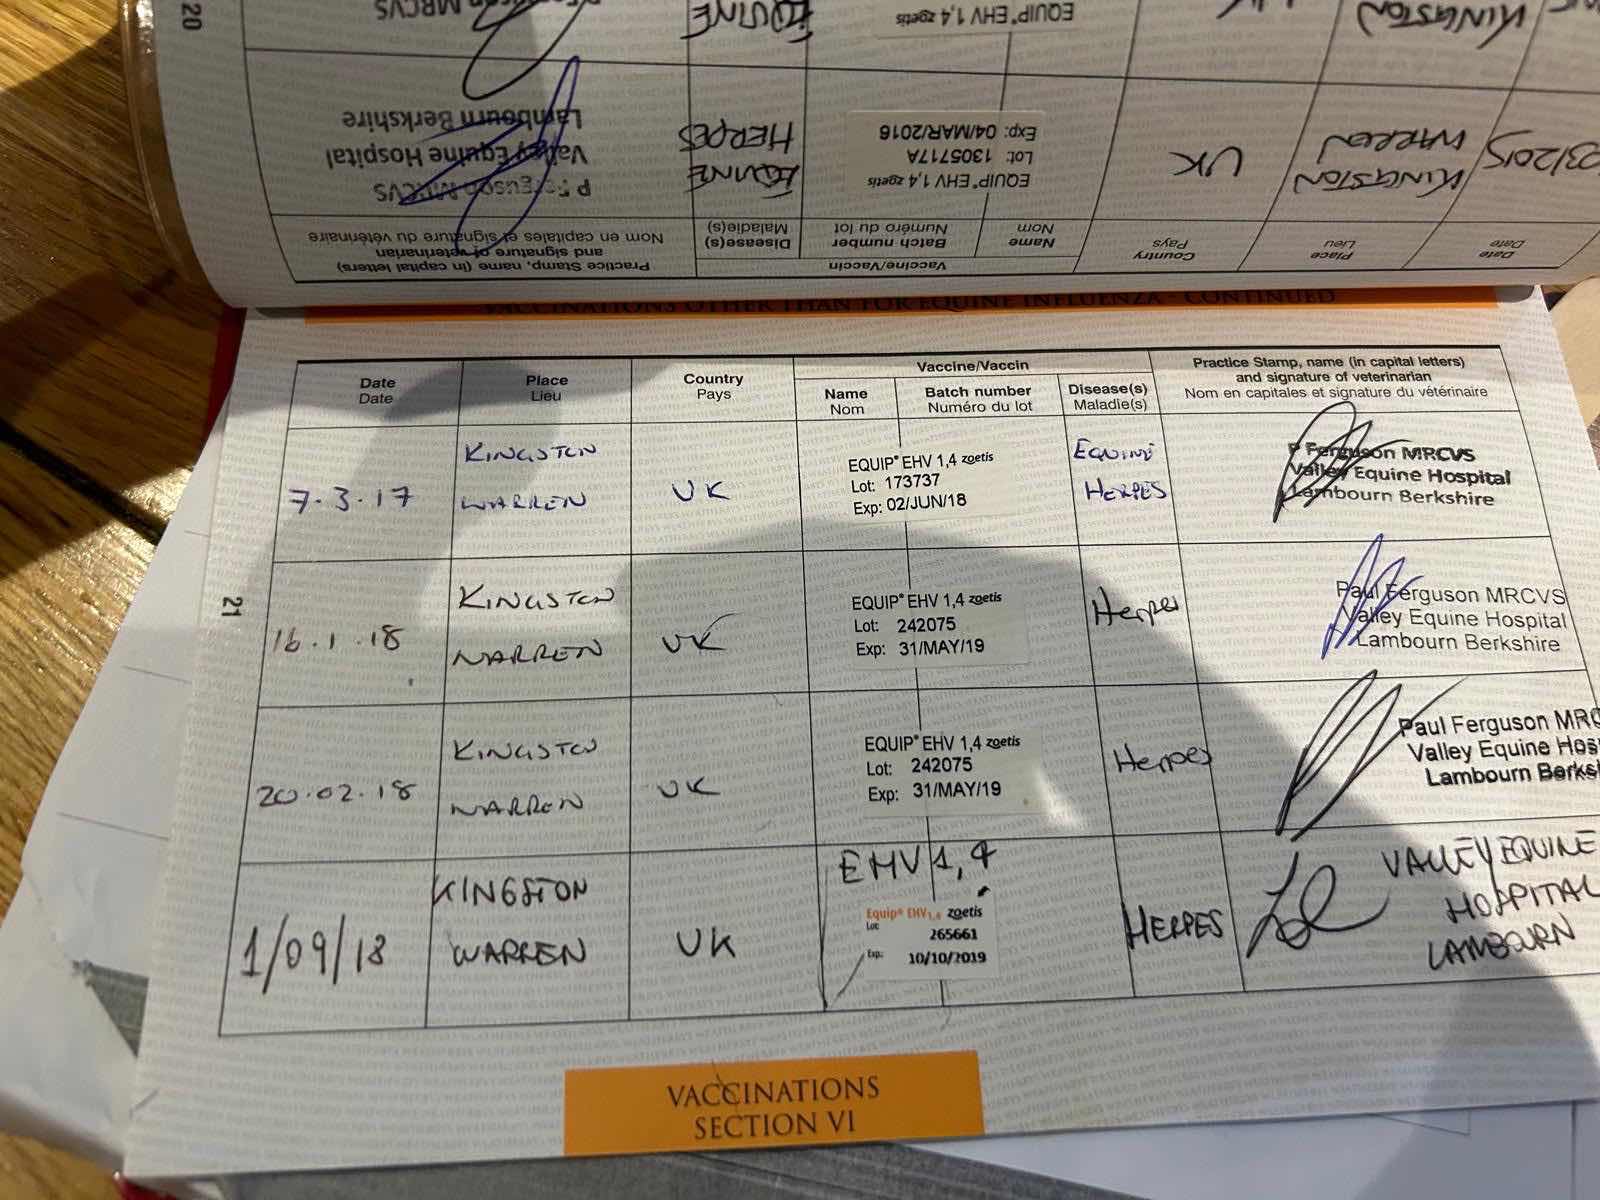 20
MRCVS
EQUINE
EQUIP® EHV 1,4 zoetis
KINGSTON
P Ferguson MRCVS
Valley Equine Hospital
Lambourn Berkshire
EQUINE
HERPES
EQUIP® EHV 1,4 zoetis
Lot: 1305717A
Exp: 04/MAR/2016
UK
KINGSTON
WARREN
03/2015
Practice Stamp, name (in capital letters)
and signature of veterinarian
Nom en capitales et signature du vétérinaire
Vaccine/Vaccin
Disease(s)
Maladie(s)
Batch number
Numéro du lot
Name
Nom
Country
Pays
Place
Lieu
Date
Date
VACCINATIONS OTHER THAN FOR EQUINE INFLUENZA - CONTINUED
Date
Date
Place
Lieu
Country
Pays
Vaccine/Vaccin
Name
Nom
Batch number
Numéro du lot
Disease(s)
Maladie(s)
Practice Stamp, name (in capital letters)
and signature of veterinarian
Nom en capitales et signature du vétérinaire
7.3.17
KINGSTON
WARREN
UK
EQUIP® EHV 1,4 zoetis
Lot: 173737
Exp: 02/JUN/18
EQUINE
HERPES
P Ferguson MRCVS
Valley Equine Hospital
Lambourn Berkshire
21
16.1.18
KINGSTON
WARREN
UK
EQUIP® EHV 1,4 zoetis
Lot: 242075
Exp: 31/MAY/19
Herpes
Paul Ferguson MRCVS
Valley Equine Hospital
Lambourn Berkshire
20.02.18
KINGSTON
WARREN
UK
EQUIP® EHV 1,4 zoetis
Lot: 242075
Exp: 31/MAY/19
Herpes
Paul Ferguson MRC
Valley Equine Hos
Lambourn Berks
1/09/18
KINGSTON
WARREN
UK
EHV 1,4
Equip® EHV1,4 zoetis
Lot: 265661
Exp: 10/10/2019
HERPES
VALLEY EQUINE
HOSPITAL
LAMBOURN
VACCINATIONS
SECTION VI